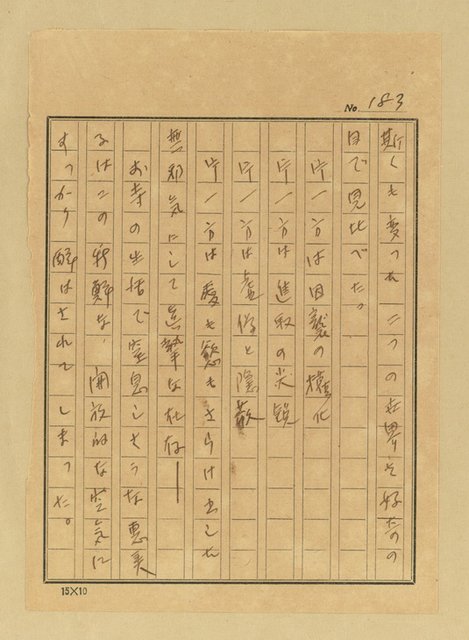 No. 183
斯くも変つた二つの世界を好たのの
目で見比べた。
片一方は因襲の権化
片一方は進取の尖鋭
片一方は虚偽と隠蔽
片一方は愛も慾もさらけ出した
無邪気にして真摯な社存――
お寺の生活で窒息しさうな恵美
子はこの新鮮な、開放的な空気に
すつかり酔はされてしまつた。
15×10